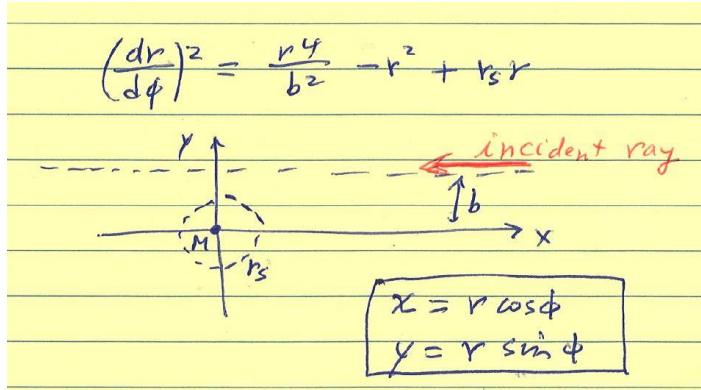 (dr/dϕ)² = r⁴/b² - r² + r_s r
y
incident ray
b
M
r_s
x
x = r cosϕ
y = r sin ϕ